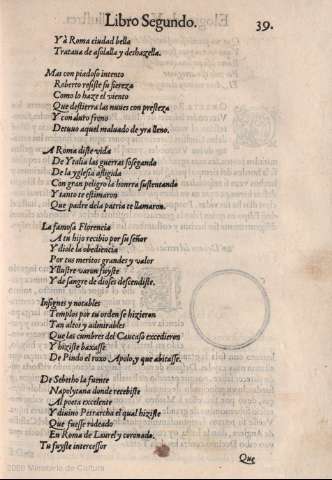 Libro Segundo. 39.
Y à Roma ciudad bella
Trataua de asolalla y deshazella.
Mas con piadoso intento
Roberto resiste su fiereza
Como lo haze el viento
Que destierra las nuues con presteza
Y con duro freno
Detuuo aquel maluado de yra lleno.
A Roma diste vida
De Ytalia las guerras sosegando
De la yglesia afligida
Con gran peligro la honrra sustentando
Y tanto te estimaron
Que padre dela patria te llamaron.
La famosa Florencia
A tu hijo recibio por su señor
Y diole la obediencia
Por tus meritos grandes y valor
Yllustre varon fuyste
Y de sangre de dioses descendiste.
Insignes y notables
Templos por su orden se hizieron
Tan altos y admirables
Que las cumbres del Caucaso excedieron
Y hiziste baxasse
De Pindo el roxo Apolo, y que abitasse.
De Sebetho la fuente
Napolytana donde recebiste
Al poeta excelente
Y diuino Petrarcha el qual hiziste
Que fuesse rodeado
En Roma de Laurel y coronado.
Tu fuyste intercessor
Que
2009 Ministerio de Cultura